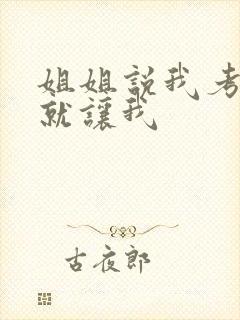 姐姐説我考
就讓我
古夜郎